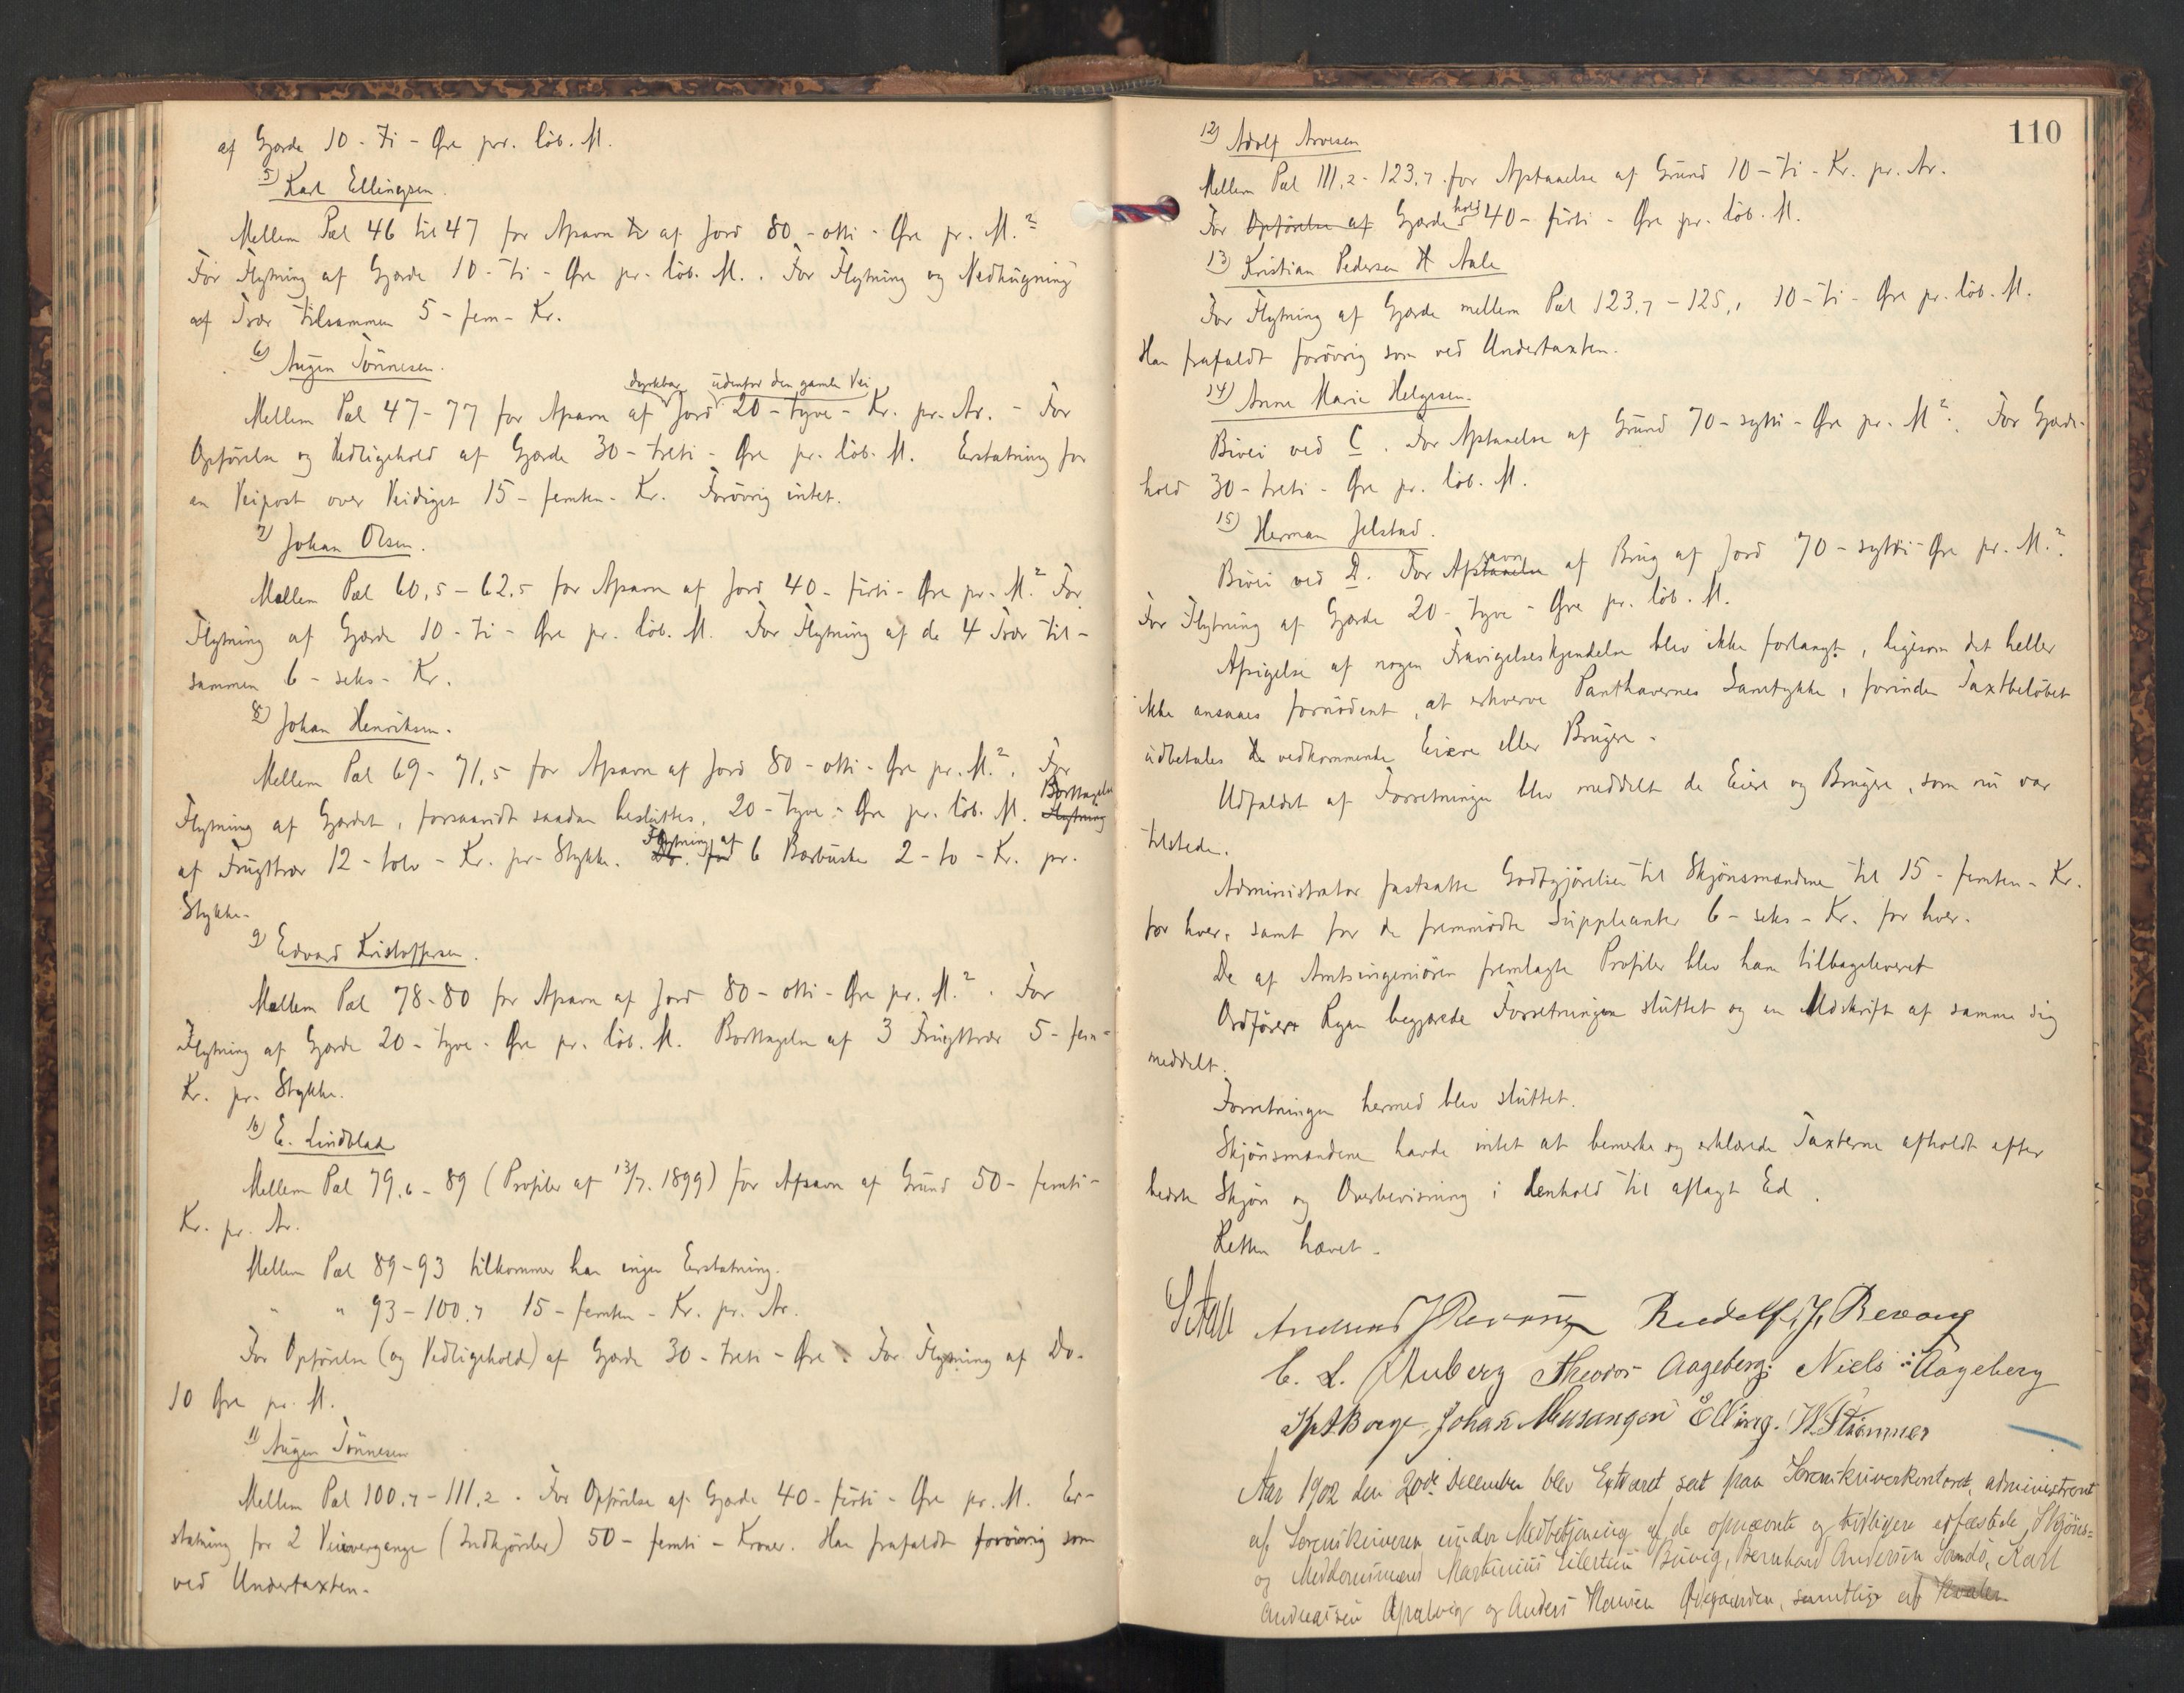 af Gjærde 10 - ti - Øre pr. løb. M.
5) Karl Ellingsen.
Mellem Pæl 46 til 47 for Afsavn af Jord 80 - otti - Øre pr. M.²
For Flytning af Gjærde 10 - ti - Øre pr. løb. M. For Flytning og Nedhugning
af Trær tilsammen 5 - fem - Kr.
6) Augen Tønnesen.
dyrkbar udenfor den gamle Vei
Mellem Pæl 47 - 77 for Afsavn af Jord 20 - tyve - Kr. pr. Ar. - For
Opførelse og Vedligehold af Gjærde 30 - treti - Øre pr. løb. M. Erstatning for
en Veipost over Veidiget 15 - femten - Kr. Forøvrig intet.
7) Johan Olsen.
Mellem Pæl 60,5 - 62,5 for Afsavn af Jord 40 - førti - Øre pr. M.² For
Flytning af Gjærde 10 - ti - Øre pr. løb. M. For Flytning af de 4 Trær til-
sammen 6 - seks - Kr.
8) Johan Henriksen.
Mellem Pæl 69 - 71,5 for Afsavn af Jord 80 - otti - Øre pr. M.². For
Flytning af Gjærdet, forsaavidt saadan besluttes, 20 - tyve - Øre pr. løb. M. Flytning Borttagelse
af Frugttrær 12 - tolv - Kr. pr. Stykke. Do. for Flytning af 6 Bærbuske 2 - to - Kr. pr.
Stykke.
9) Edvard Kristoffersen.
Mellem Pæl 78-80 for Afsavn af Jord 80 - otti - Øre pr. M.². For
Flytning af Gjærde 20 - tyve - Øre pr. løb. M. Borttagelse af 3 Frugttrær 5 - fem -
Kr. pr. Stykke.
10) E. Lindblad
Mellem Pæl 79,6 - 89 (Profiler af 13/7. 1899) for Afsavn af Grund 50 - femti -
Kr. pr. Ar.
Mellem Pæl 89-93 tilkommer han ingen Erstatning.
" " 93 - 100,7 15 - femten - Kr. pr. Ar.
For Opførelse (og Vedligehold) af Gjærde 30 - treti - Øre. For Flytning af Do.
10 Øre pr. M.
11) Augen Tønnesen
Mellem Pæl 100,7 - 111,2. For Opførelse af Gjærde 40 - førti - Øre pr. M. Er-
statning for 2 Veiovergange (Indkjørsler) 50 - femti - Kroner. Han frafaldt forøvrig som
ved Undertaxten.
110
12) Adolf Arvesen
Mellem Pæl 111,2 - 123,7 for Afstaaelse af Grund 10 - ti - Kr. pr. Ar.
For Opførelse af Gjærdehold 40 - førti - Øre pr. løb. M.
13) Kristian Pedersen Aale
For Flytning af Gjærde mellem Pæl 123,7 - 125,1 10 - ti - Øre pr. løb. M.
Han frafaldt forøvrig som ved Undertaxten.
14) Anne Marie Helgesen.
Bivei ved C. For Afstaaelse af Grund 70 - sytti - Øre pr. M². For Gjærde-
hold 30 - treti - Øre pr. løb. M.
15) Herman Jelstad.
Bivei ved D. For Afstaaelse savn af Brug af Jord 70 - sytti - Øre pr. M.².
For Flytning af Gjærde 20 - tyve - Øre pr. løb. M.
Afsigelse af nogen Fravigelseskjendelse blev ikke forlangt, ligesom det heller
ikke ansaaes fornødent, at erhverve Panthavernes Samtykke, forinden Taxtbeløbet
udbetales vedkommende Eiere eller Brugere.
Udfaldet af Forretningen blev meddelt de Eiere og Brugere, som nu var
tilstede.
Administrator fastsatte Godtgjørelsen til Skjønsmændene til 15 - femten - Kr.
for hver, samt for de fremmødte Suppleanter 6 - seks - Kr. for hver.
De af Amtsingeniøren fremlagte Profiler blev ham tilbageleveret
Ordfører Ryen begjærede Forretningen sluttet og en Udskrift af samme sig
meddelt.
Forretningen hermed blev sluttet.
Skjønsmændene havde intet at bemerke og erklærede Taxterne afholdt efter
bedste Skjøn og Overbevisning i Henhold til aflagt Ed.
Retten hævet.
Andreas J Revaug Rudolf J. Revaug
C. L. Auberg Theodor Aageberg Niels Aageberg
Johan Elling. W. Strømmer
Aar 1902 den 20de December blev Extraret sat paa Sorenskriverkontoret, administreret
af Sorenskriveren under Medbetjening af de opnævnte og tidligere edfæstede Skjøns-
og Meddomsmænd Martinius Eilertsen Buvig, Bernhard Andersen Sandø, Karl
Andreassen og Anders Hansen Ødegaarden, samtlige af Hvaler